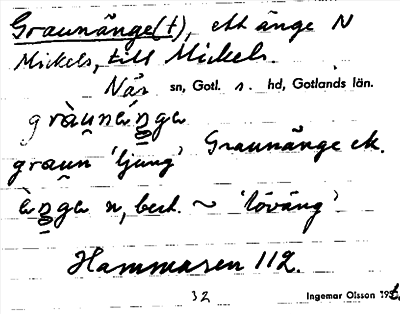 Graunänge(t), ett änge N
Mickels, till Mickels.
När sn, Gotl. s. hd, Gotlands län.
gràunèŋgə
Graunänge ek.
graun 'ljung'
èŋgə n, best. ~ 'löväng'
Hammaren 112.
32
Ingemar Olsson 195